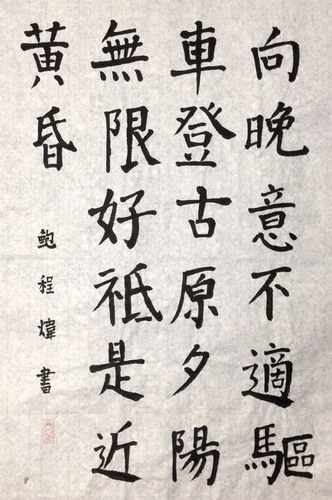 向晚意不適驅
車登古原夕陽
無限好祗是近
黃昏
鮑程煒書